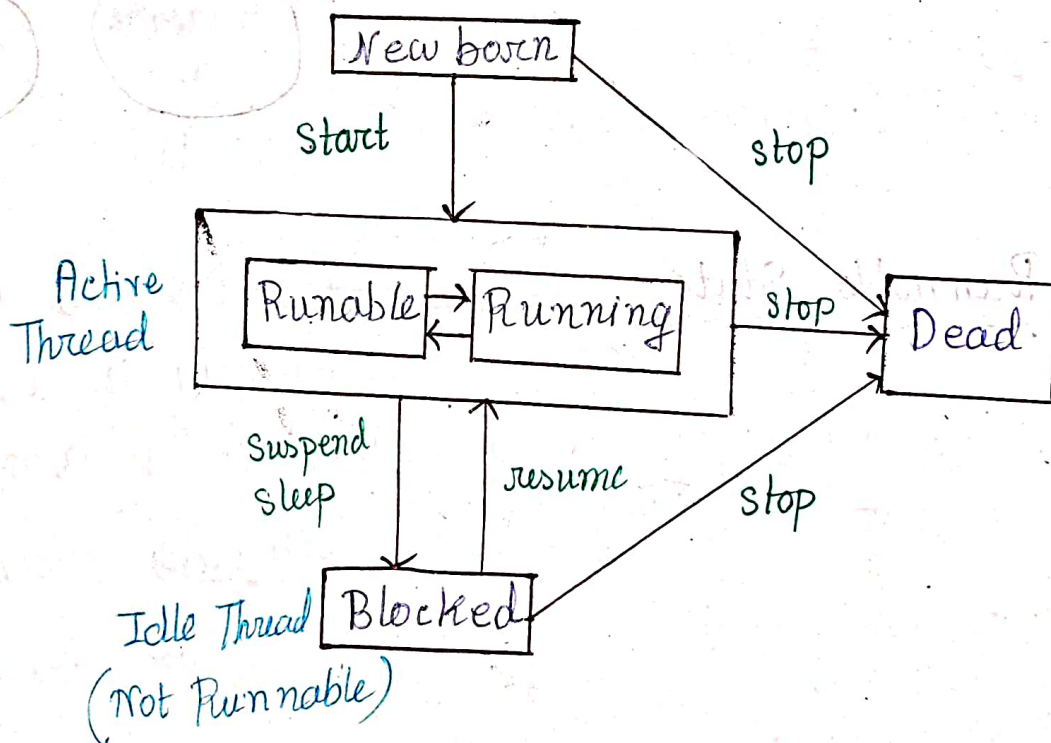 New born
start
stop
Active
Thread
Runable
Running
stop
Dead
suspend
sleep
resume
stop
Idle Thread
Blocked
(Not Runnable)